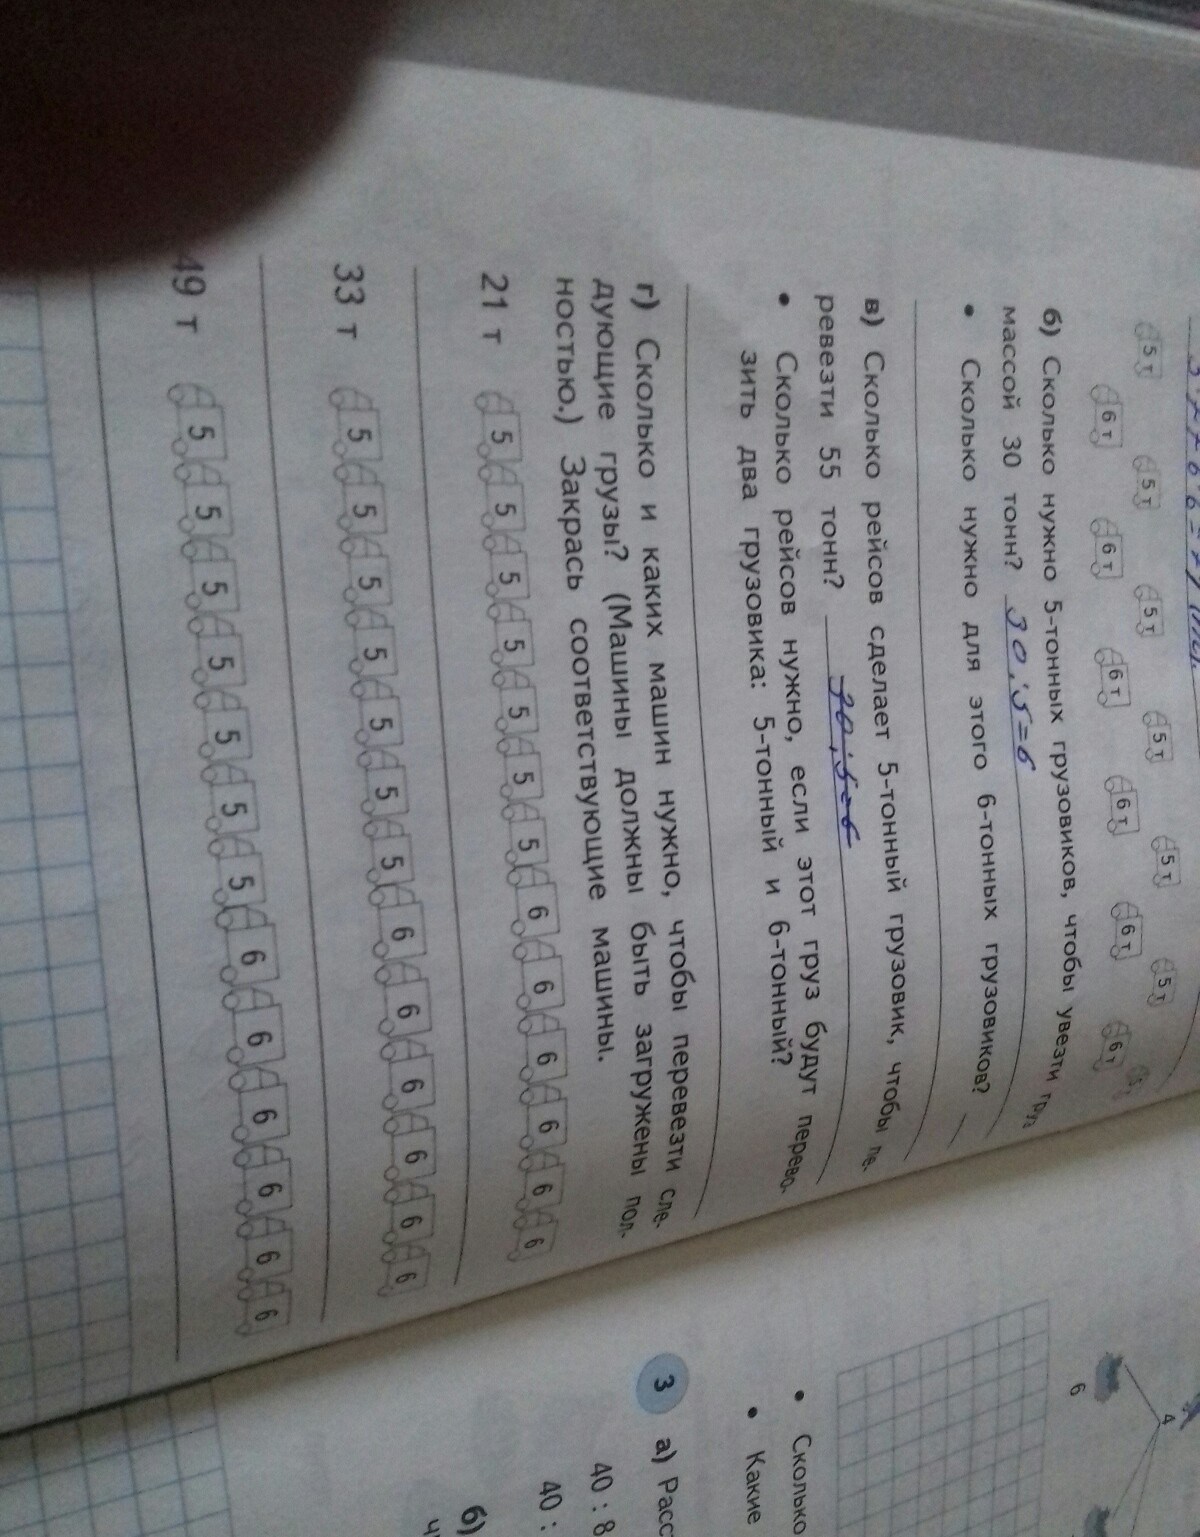 5 т 5 т 5 т 5 т 5 т 5 т
6 т 6 т 6 т 6 т 6 т 6 т
б) Сколько нужно 5-тонных грузовиков, чтобы увезти груз
массой 30 тонн? 30:5=6
• Сколько нужно для этого 6-тонных грузовиков?
в) Сколько рейсов сделает 5-тонный грузовик, чтобы пе-
ревезти 55 тонн? 30:5=6
• Сколько рейсов нужно, если этот груз будут перево-
зить два грузовика: 5-тонный и 6-тонный?
г) Сколько и каких машин нужно, чтобы перевезти сле-
дующие грузы? (Машины должны быть загружены пол-
ностью.) Закрась соответствующие машины.
21 т 5 5 5 5 5 5 5 6 6 6 6 6 6
33 т 5 5 5 5 5 5 5 6 6 6 6 6 6
49 т 5 5 5 5 5 5 5 6 6 6 6 6 6
4
6
• Сколько
• Какие
3 а)
40 : 8
40 :
б)